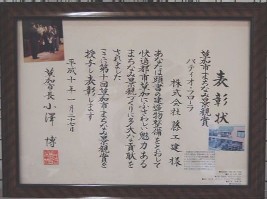 表彰状
草加市まちなみ景観賞
パティオフローラ
株式会社 藤工建 様
あなたは頭書の建造物整備をとおして
快適都市草加にふさわしい魅力ある
まちなみ景観づくりに多大な貢献を
されました
ここに第十回草加市まちなみ景観賞を
授与し表彰します
平成十年一月二十七日
草加市長 小澤 博